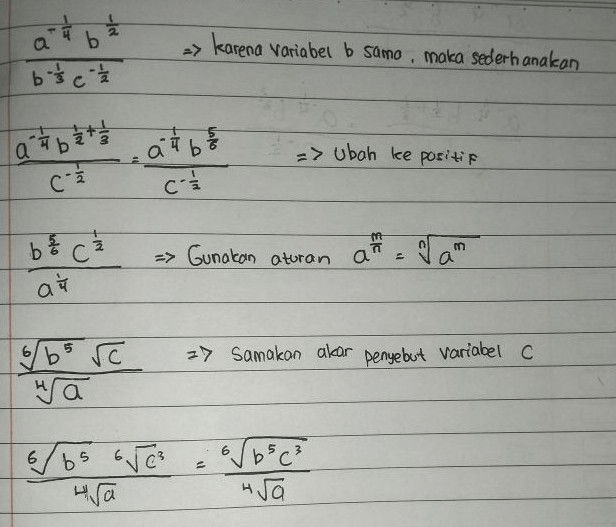 a^{-1/4} b^{1/2} / b^{-1/3} c^{-1/2} => karena variabel b sama, maka sederhanakan
a^{-1/4} b^{1/2+1/3} / c^{-1/2} = a^{-1/4} b^{5/6} / c^{-1/2} => Ubah ke positif
b^{5/6} c^{1/2} / a^{1/4} => Gunakan aturan a^{m/n} = ⁿ√a^m
⁶√b⁵ √c / ⁴√a => Samakan akar penyebut variabel C
⁶√b⁵ ⁶√c³ / ⁴√a = ⁶√b⁵c³ / ⁴√a